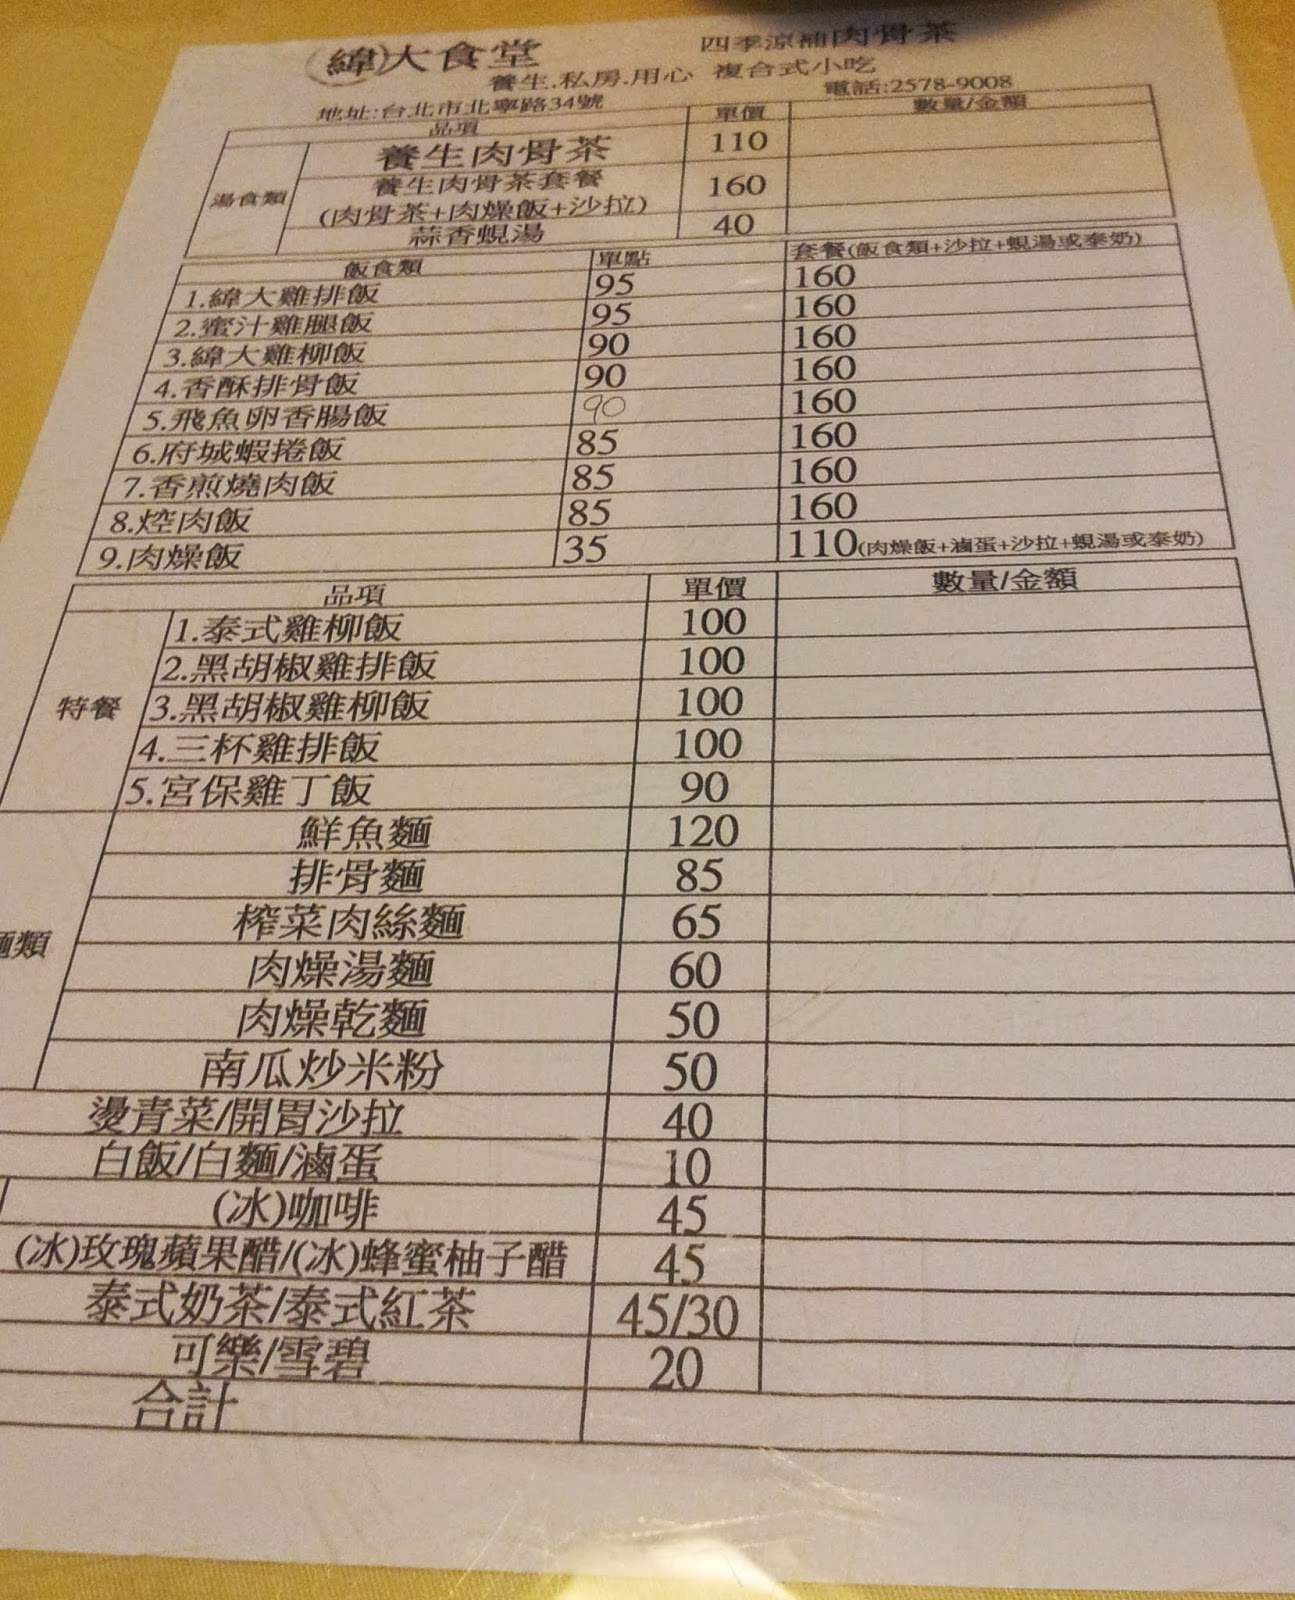 (緯)大食堂 四季涼補肉骨茶
養生.私房.用心 複合式小吃
地址:台北市北寧路34號 電話:2578-9008
品項 單價 數量/金額
湯食類
養生肉骨茶 110
養生肉骨茶套餐 160
(肉骨茶+肉燥飯+沙拉)
蒜香蜆湯 40
飯食類 單點 套餐(飯食類+沙拉+蜆湯或泰奶)
1.緯大雞排飯 95 160
2.蜜汁雞腿飯 95 160
3.緯大雞柳飯 90 160
4.香酥排骨飯 90 160
5.飛魚卵香腸飯 90 160
6.府城蝦捲飯 85 160
7.香煎燒肉飯 85 160
8.焢肉飯 85 160
9.肉燥飯 35 110(肉燥飯+滷蛋+沙拉+蜆湯或泰奶)
品項 單價 數量/金額
特餐
1.泰式雞柳飯 100
2.黑胡椒雞排飯 100
3.黑胡椒雞柳飯 100
4.三杯雞排飯 100
5.宮保雞丁飯 90
麵類
鮮魚麵 120
排骨麵 85
榨菜肉絲麵 65
肉燥湯麵 60
肉燥乾麵 50
南瓜炒米粉 50
燙青菜/開胃沙拉 40
白飯/白麵/滷蛋 10
(冰)咖啡 45
(冰)玫瑰蘋果醋/(冰)蜂蜜柚子醋 45
泰式奶茶/泰式紅茶 45/30
可樂/雪碧 20
合計